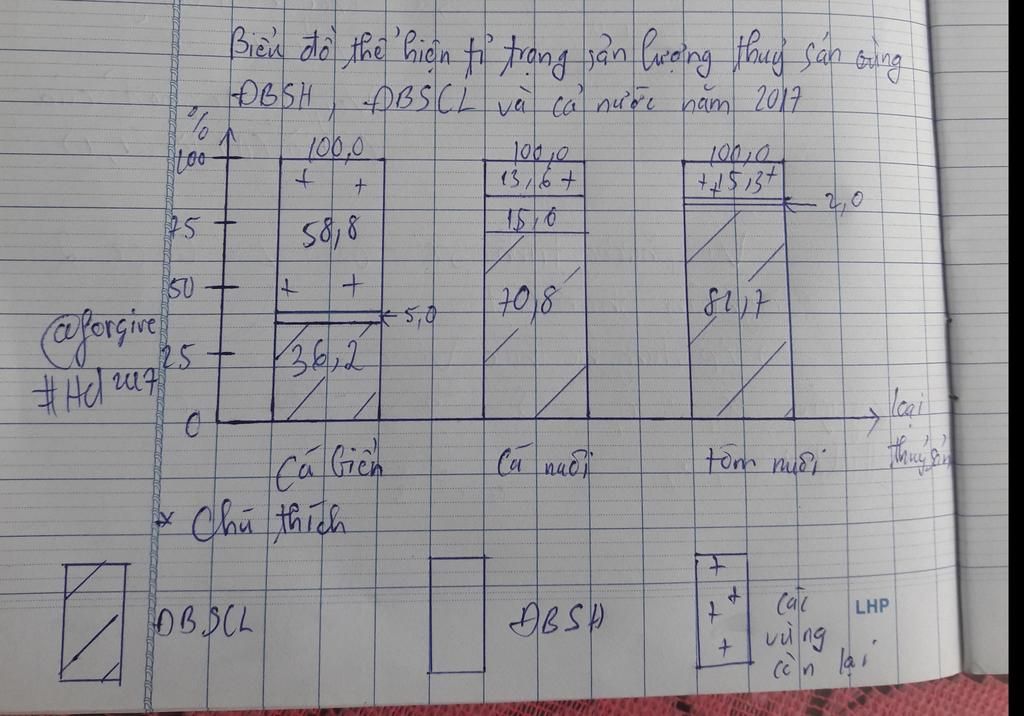 Biểu đồ thể hiện tỉ trọng sản lượng thuỷ sản vùng
ĐBSH, ĐBSCL và cả nước năm 2017
%
100
75
50
25
0
100,0
58,8
5,0
36,2
100,0
13,6
15,6
70,8
100,0
15,3
2,0
82,7
Cá biển
Cá nuôi
tôm nuôi
loại
thuỷ sản
@forgive
#Hd
* Chú thích
ĐBSCL
ĐBSH
các
vùng
còn lại
LHP